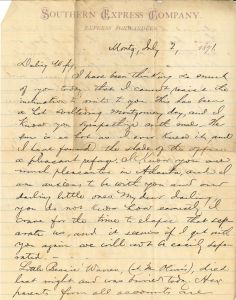 SOUTHERN EXPRESS COMPANY.
EXPRESS FORWARDERS
Montg, July 2, 1871.
Darling Wife,
I have been thinking so much
of you today that I cannot resist the
inclination to write to you this has been
a hot sweltering Montgomery day, and I
know you
sun is as hot as I ever knew it, and
I have found the shade of the office
a pleasant refuge. I know you are
much pleasanter in Atlanta, and I
am anxious to be with you and our
darling little ones My dear
you do not know how earnestly I
crave for the time to elapse that sep-
arate us, and it seems if I get with
you again we will not be easily sepa-
rated. —
Little Bessie Warren, (at Mr ), died
last night and was buried today. Her
parents from all accounts are